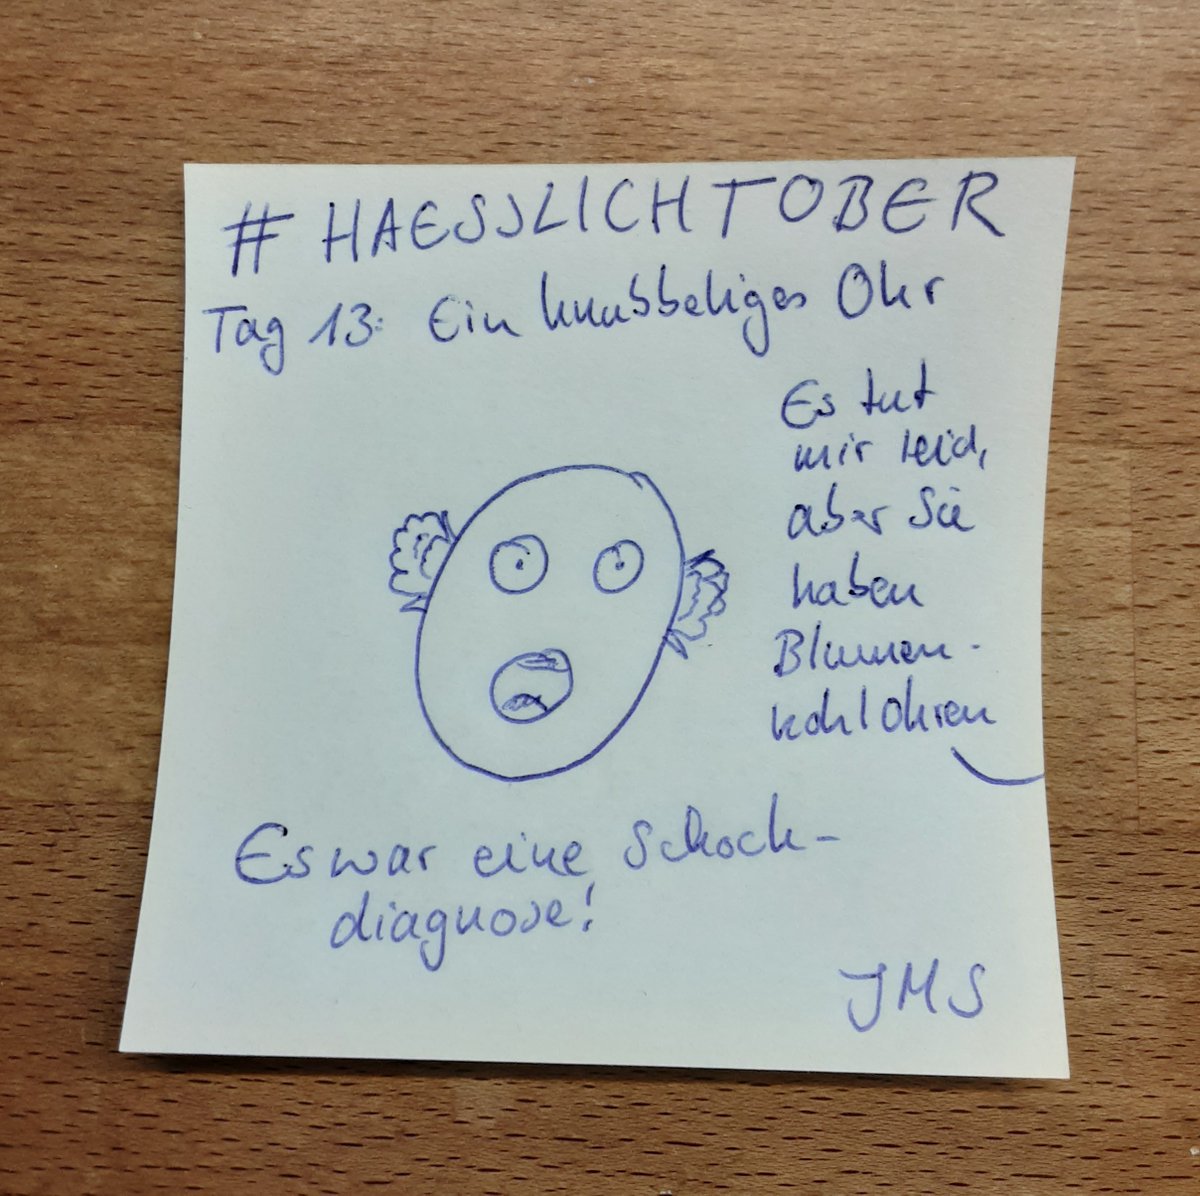 #HAESSLICHTOBER
Tag 13: Ein knubbeliges Ohr
Es tut
mir leid,
aber Sie
haben
Blumen-
kohlohren
Es war eine Schock-
diagnose!
JMS